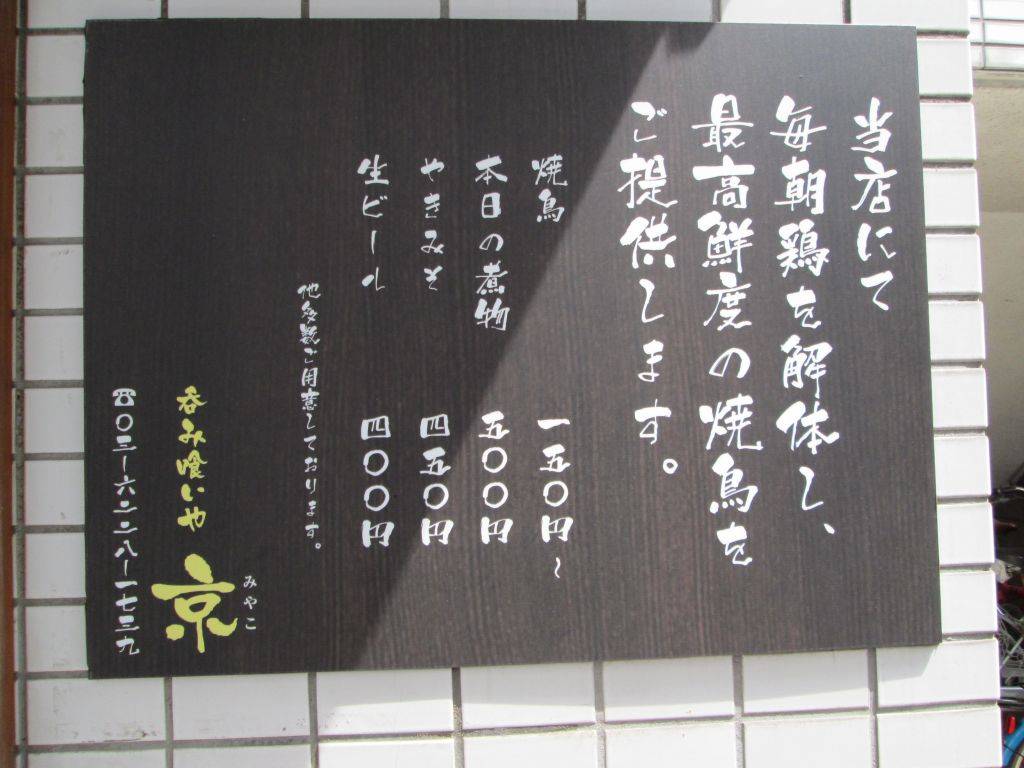 当店にて
毎朝鶏を解体し、
最高鮮度の焼鳥を
ご提供します。
焼鳥 一五〇円~
本日の煮物 五〇〇円
やきみそ 四五〇円
生ビール 四〇〇円
他多数ご用意しております。
みやこ
呑み喰いや 京
☎〇三ー六二二八ー一七三九